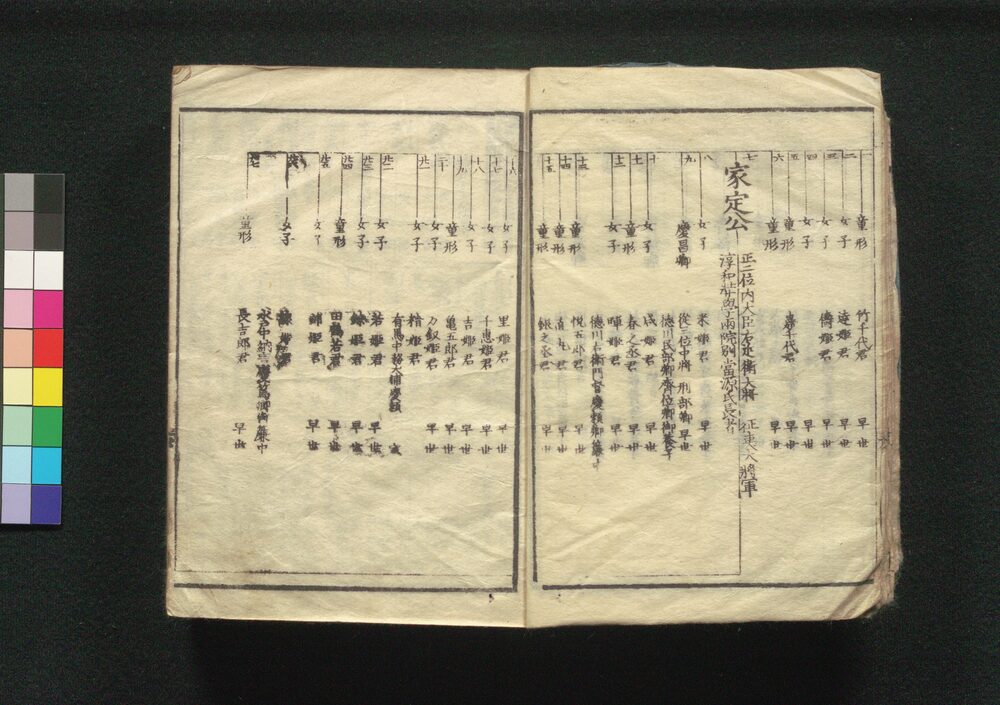 一 童形 竹千代君 早世
二 女子 達姫君 早世
三 女子 儔姫君 早世
四 女子 早世
五 童形 嘉千代君 早世
六 童形 早世
七 家定公 正二位内大臣左近衛大將 征夷大將軍
淳和奨學兩院別當源氏長者
八 女子 米姫君 早世
九 慶昌卿 從三位中將 刑部卿 早世
徳川民部卿齊位卿御養子
十 女子 咸姫君 早世
十一 童形 春之丞君 早世
十二 女子 暉姫君 早世
徳川右衛門督慶頼卿簾中
十三 童形 悦五郎君 早世
十四 童形 早世
十五 童形 銀之丞君 早世
十六 女子 里姫君 早世
十七 女子 千恵姫君 早世
十八 女子 吉姫君 早世
十九 童形 亀五郎君 早世
二十 女子 万釵姫君 早世
廿一 女子 精姫君
有馬中務大輔慶頼 室
廿二 女子 若姫君 早世
廿三 女子 姫君 早世
廿四 童形 田鶴若君 早世
廿五 女子 錦姫君 早世
女子
水戸中納言慶篤卿御簾中
廿七 童形 長吉郎君 早世